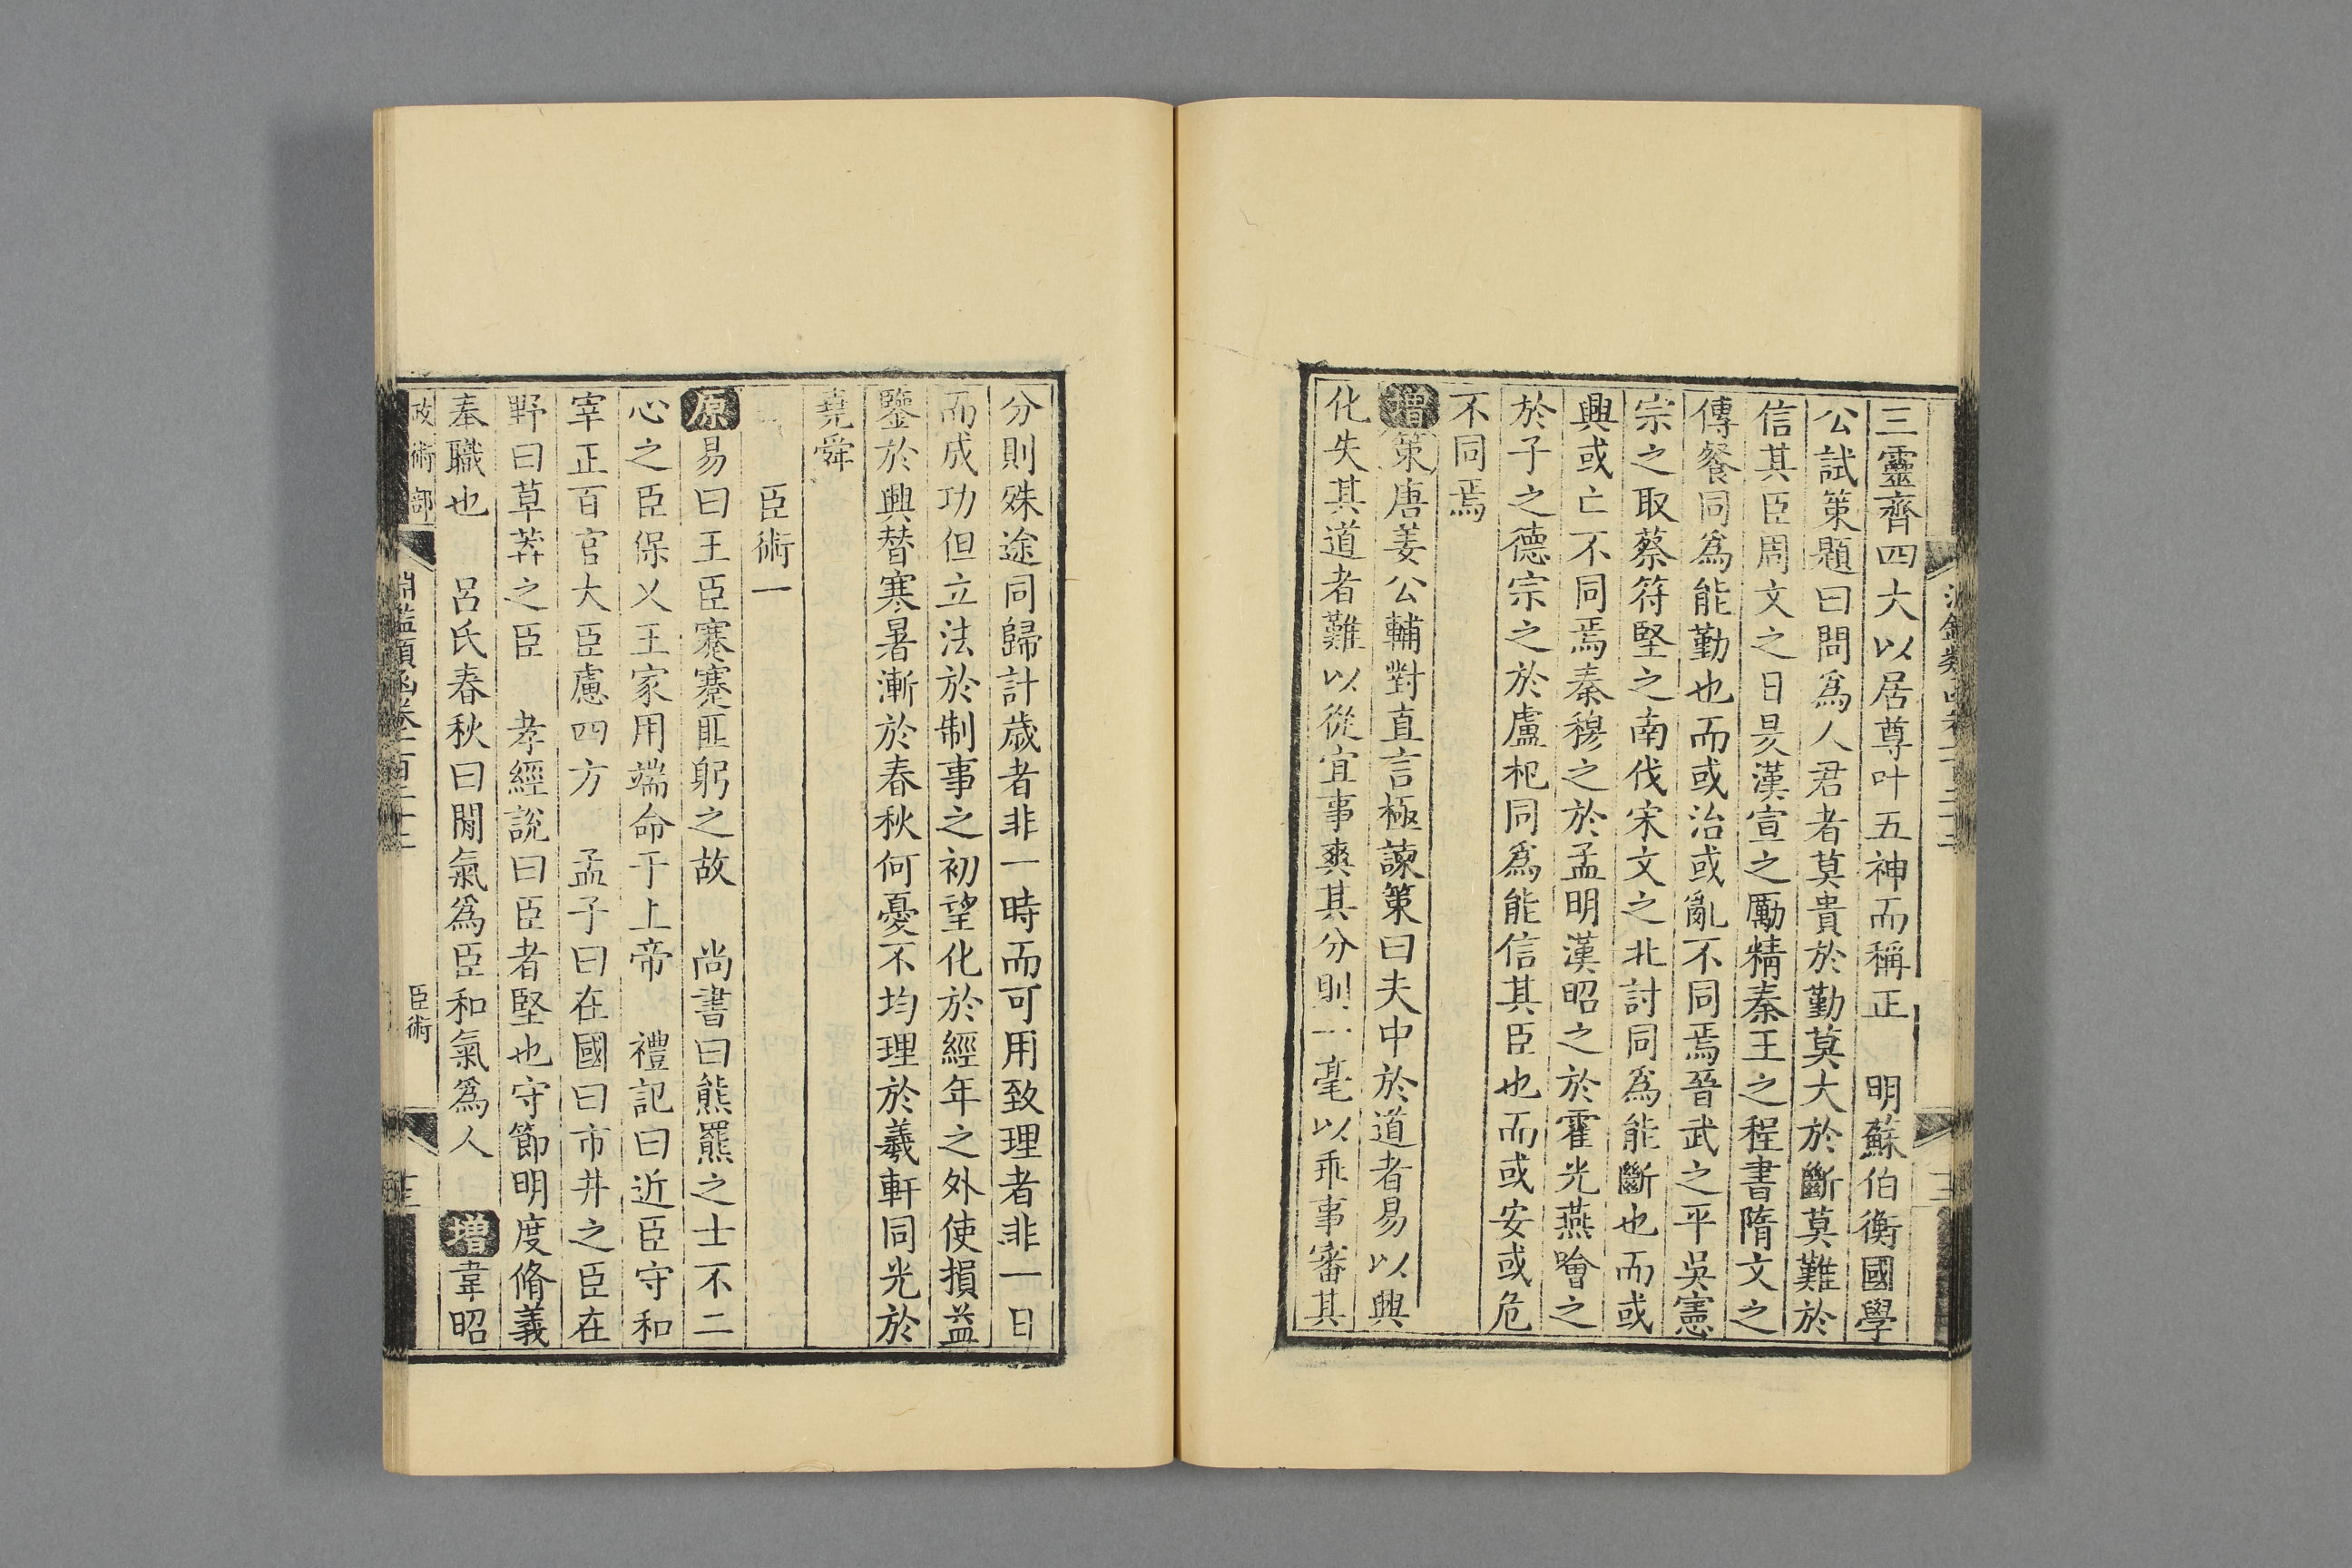 三靈齊四大以居尊叶五神而稱正　明蘇伯衡國學
公試策題曰問爲人君者莫貴於勤莫大於斷莫難於
信其臣周文之日昃漢宣之勵精秦王之程書隋文之
傳餐同爲能勤也而或治或亂不同焉晉武之平吳憲
宗之取蔡符堅之南伐宋文之北討同爲能斷也而或
興或亡不同焉秦穆之於孟明漢昭之於霍光燕噲之
於子之德宗之於盧杞同爲能信其臣也而或安或危
不同焉
增策唐姜公輔對直言極諫策曰夫中於道者易以興
化失其道者難以從宜事爽其分則一毫以乖事審其
分則殊途同歸計歲者非一時而可用致理者非一日
而成功但立法於制事之初望化於經年之外使損益
鑒於興替寒暑漸於春秋何憂不均理於羲軒同光於
堯舜
臣術一
原易曰王臣蹇蹇匪躬之故　尚書曰熊羆之士不二
心之臣保乂王家用端命于上帝　禮記曰近臣守和
宰正百官大臣慮四方　孟子曰在國曰市井之臣在
野曰草莽之臣　孝經說曰臣者堅也守節明度脩義
奉職也　呂氏春秋曰閒氣爲臣和氣爲人　增韋昭
政術部　淵鑑類函卷一百二十二　臣術